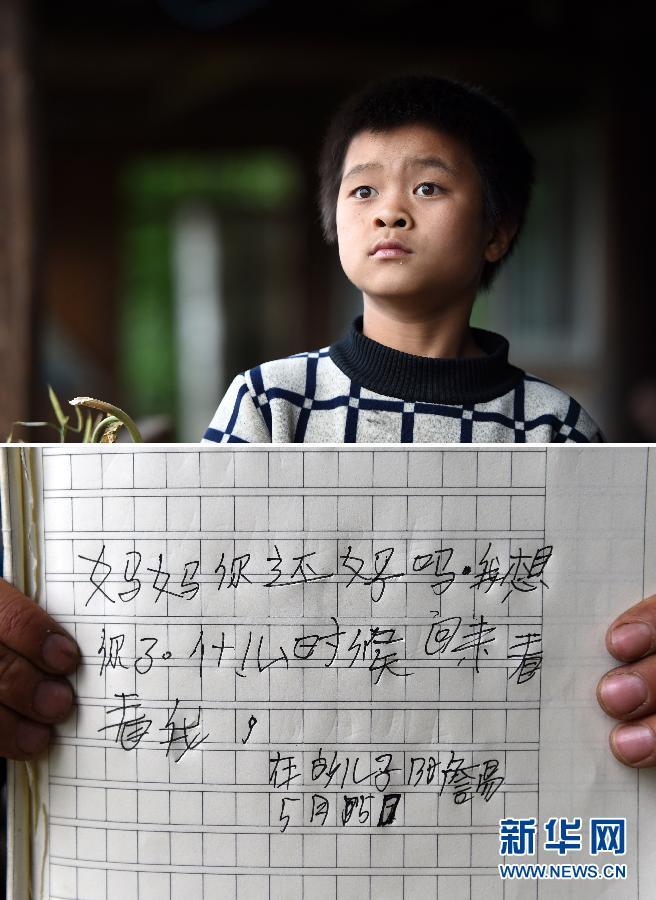 妈妈你还好吗·我想
你了。什么时候回来看
看我，
的儿子
5月 日
新华网
WWW.NEWS.CN